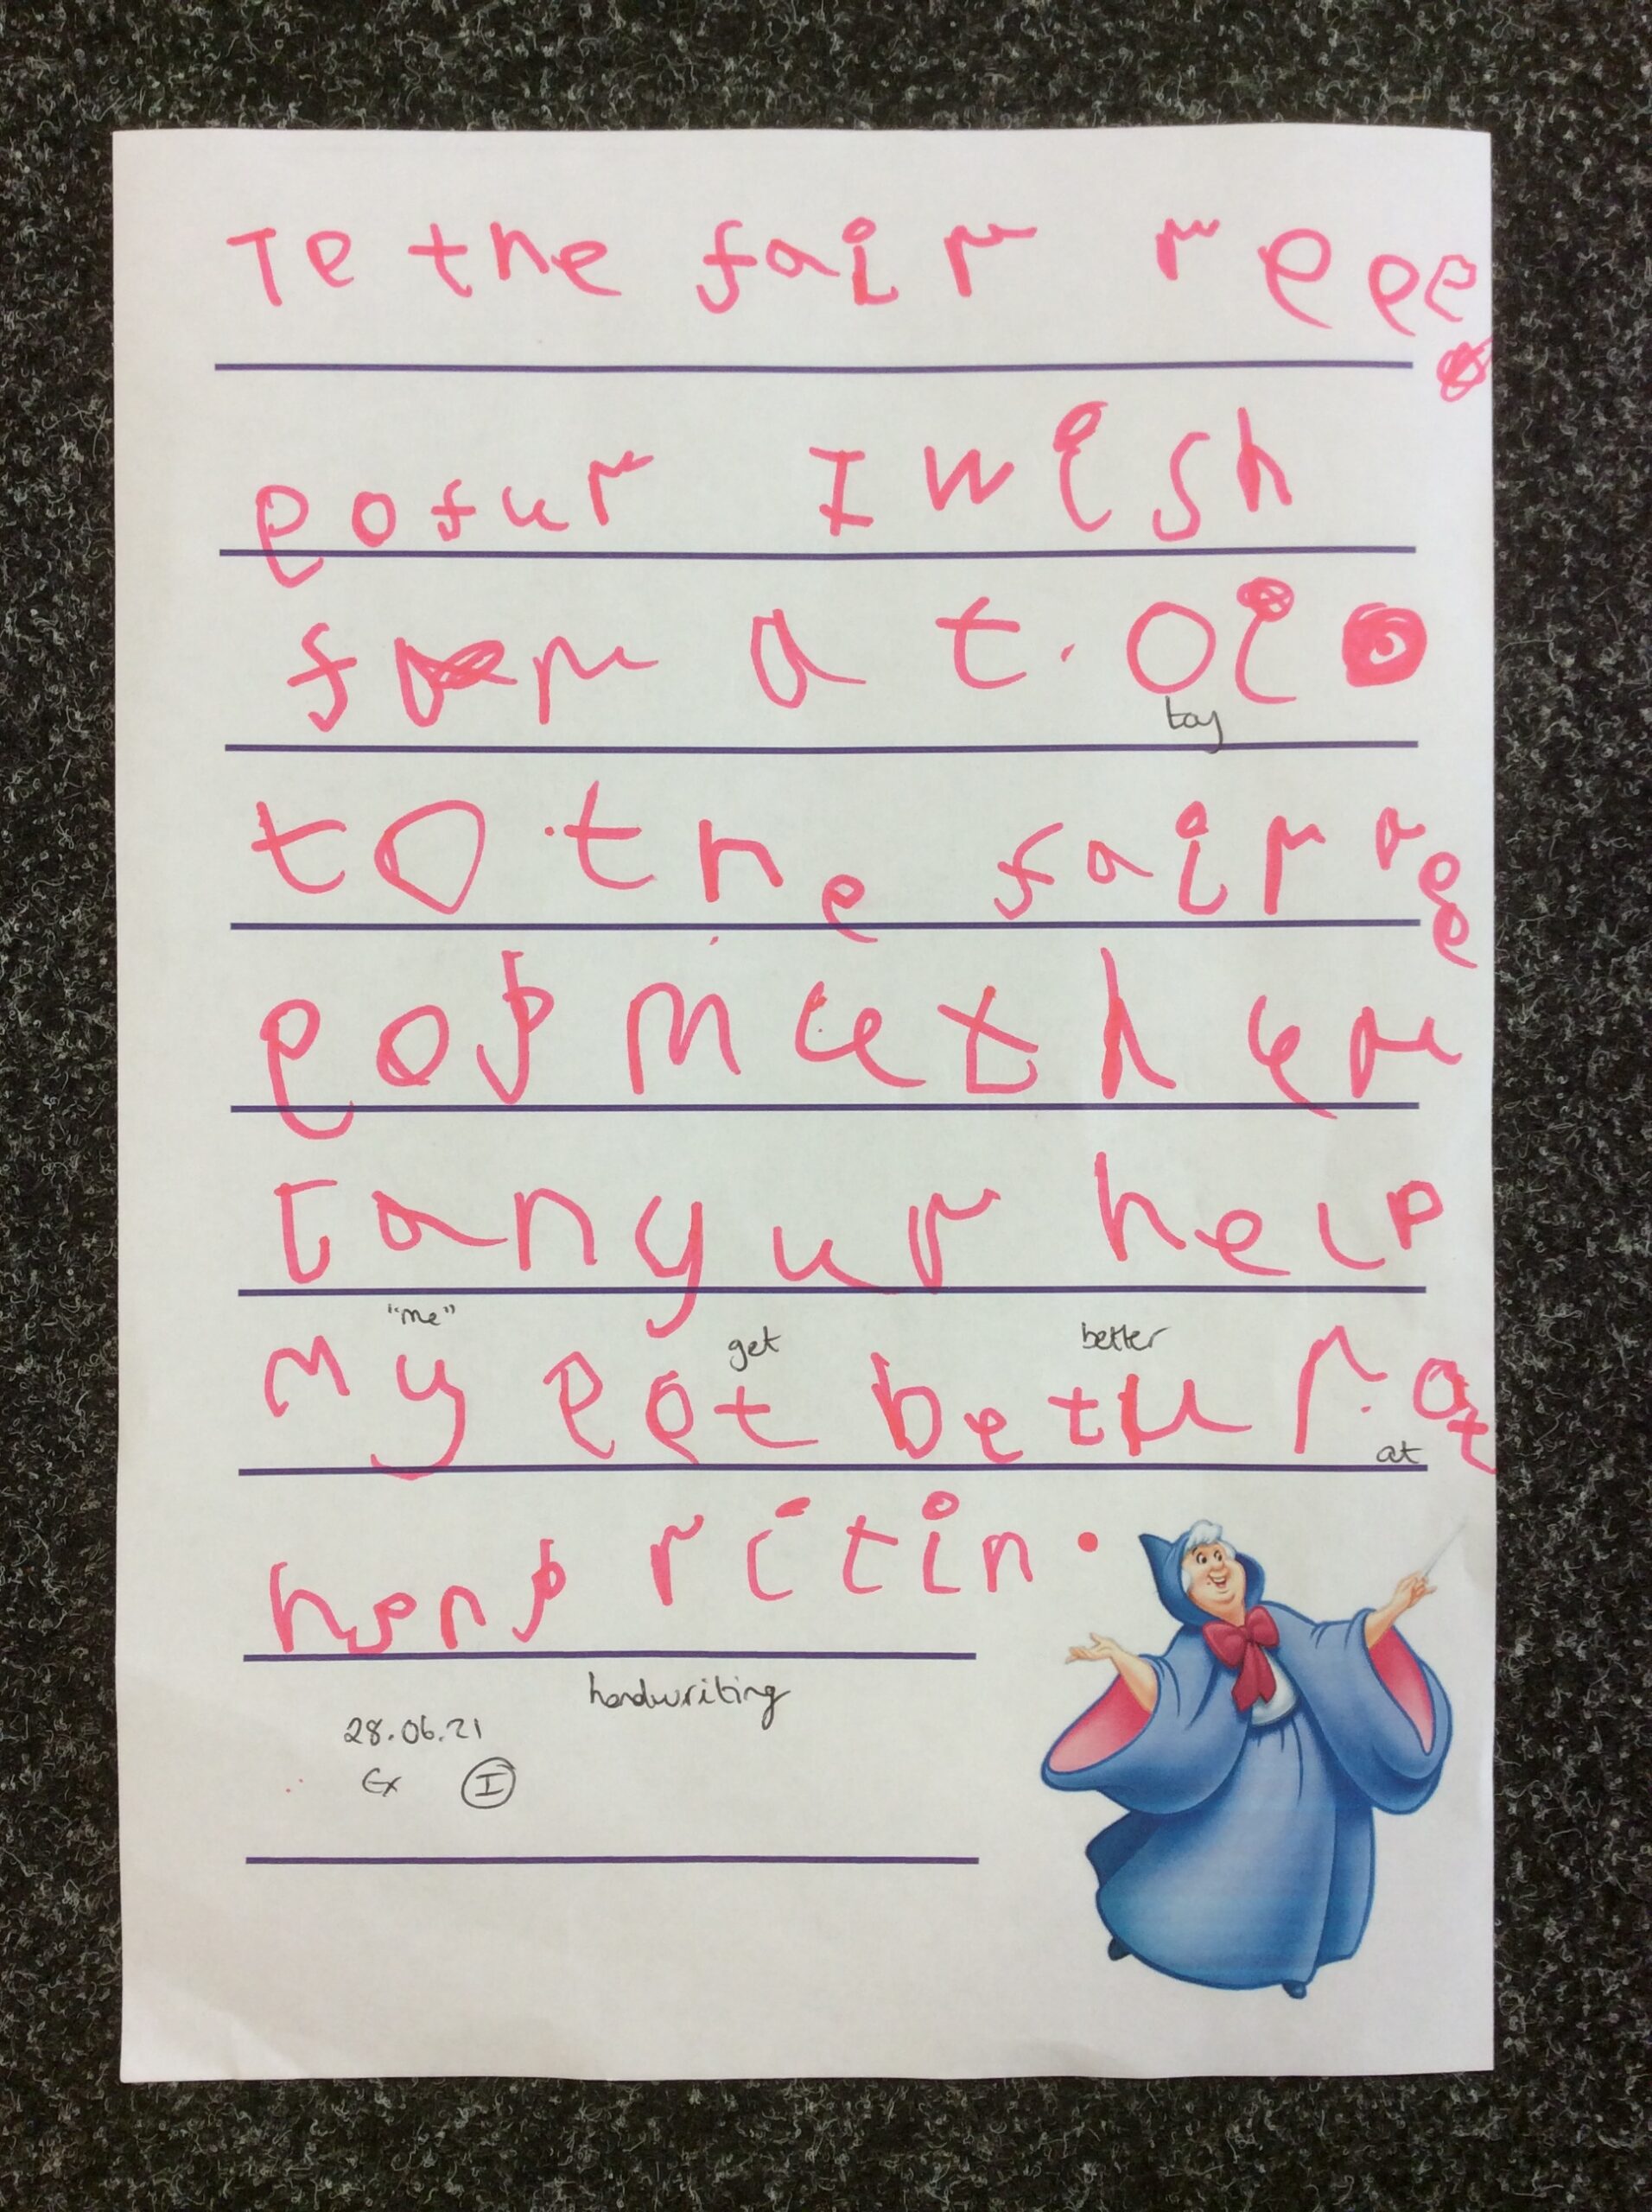 Te the fair reee
gofur I wish
for a toi
toy
to the fair ree
god muther
can yur help
"me"
get
better
my get betur at
at
hand ritin.
handwriting
28.06.21
Ex I